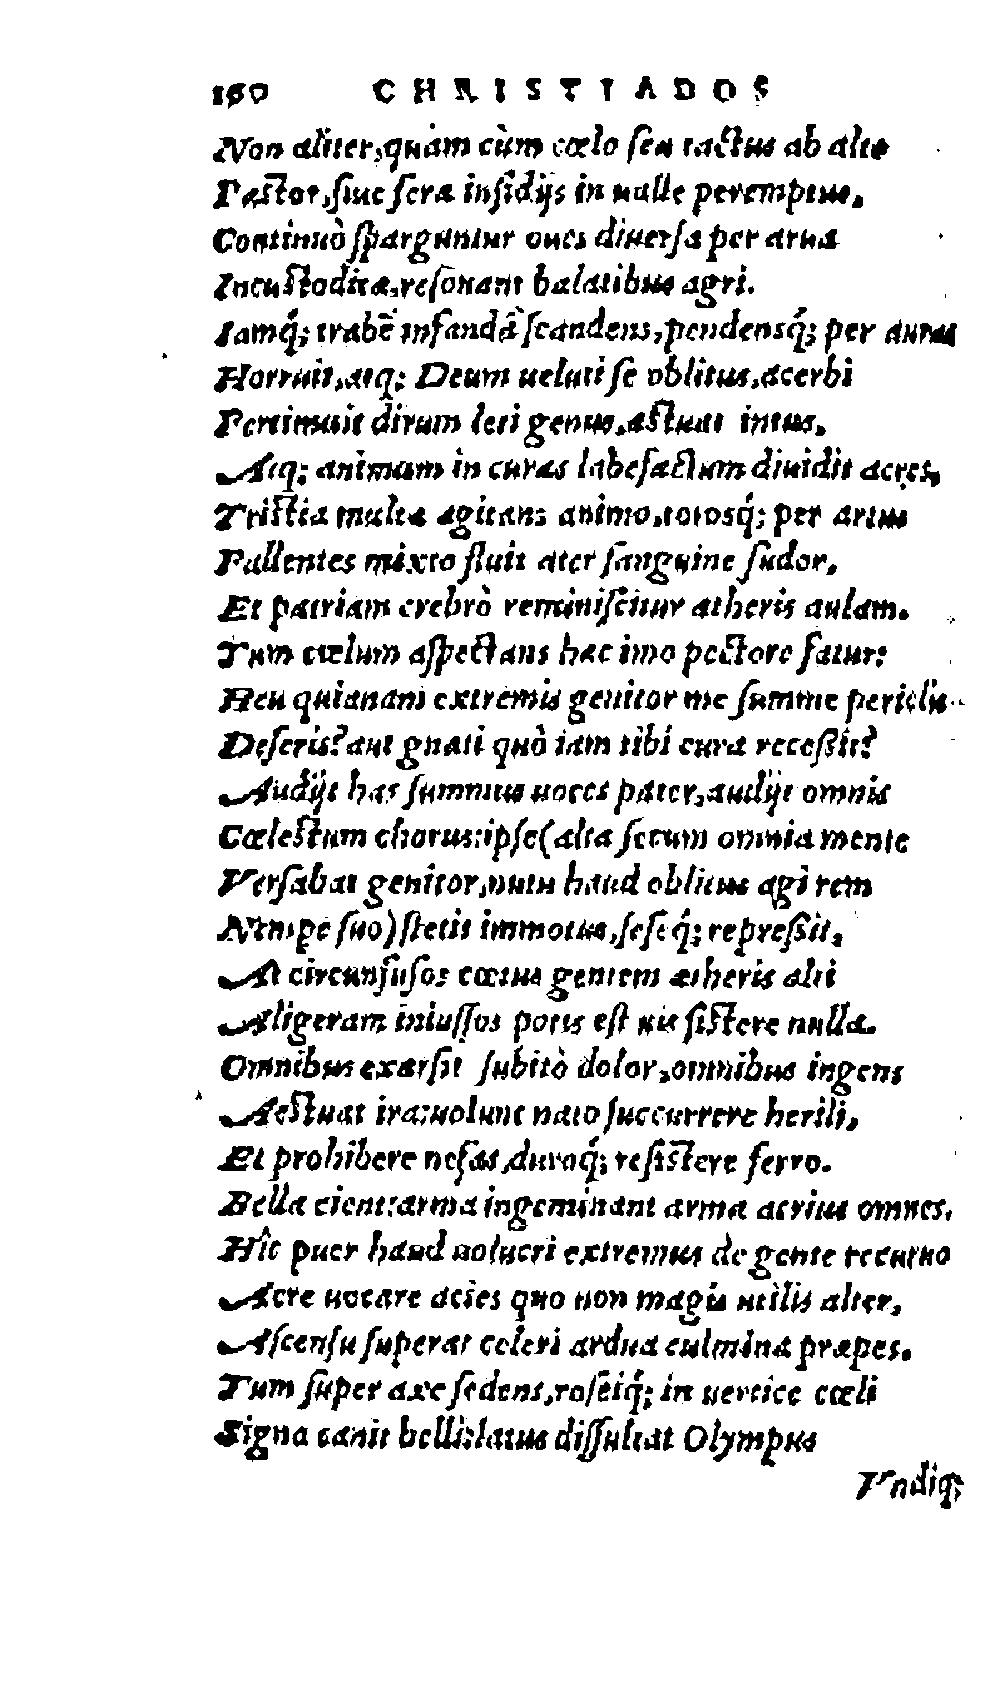 160 CHRISTIADOS
Non aliter, quàm cùm cœlo seu tactus ab alto
Pastor, siue feræ insidijs in ualle peremptus,
Continuò sparguntur oues diuersa per arua
Incustoditæ, resonant balatibus agri.
Iamq́; trabē infandā scandens, pendensq́; per auras
Horruit, atq; Deum ueluti se oblitus, acerbi
Pertimuit dirum leti genus, æstuat intus,
Atq; animum in curas labefactum diuidit acres,
Tristia multa agitans animo, totosq́; per artus
Pallentes mixto fluit ater sanguine sudor,
Et patriam crebrò reminiscitur ætheris aulam.
Tum cœlum aspectans hæc imo pectore fatur:
Heu quianam extremis genitor me summe periclis
Deseris? aut gnati quò iam tibi cura recessit?
Audijt has summus uoces pater, audijt omnis
Cœlestum chorus: ipse (alta secum omnia mente
Versabat genitor, nutu haud oblitus agi rem
Nempe suo) stetit immotus, seseq́; repressit,
At circunfusos cœtus gentem ætheris alti
Aligeram iniussos potis est uis sistere nulla.
Omnibus exarsit subitò dolor, omnibus ingens
Aestuat ira: uolunt nato succurrere herili,
Et prohibere nefas, duroq́; resistere ferro.
Bella cient: arma ingeminant arma acrius omnes.
Hîc puer haud uolucri extremus de gente recuruo
Aere uocare acies quo non magis utilis alter,
Ascensu superat celeri ardua culmina præpes.
Tum super axe sedens, roseiq́; in uertice cœli
Signa canit belli: latus dissultat Olympus
Vndiq;